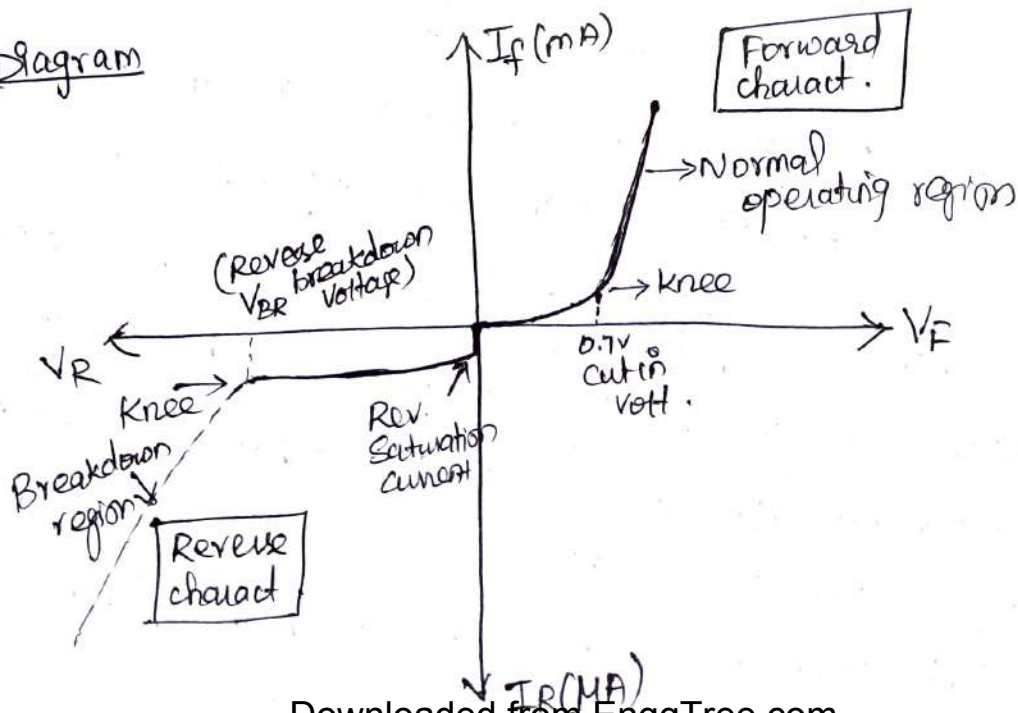 Diagram
If (mA)
Forward
charact.
→Normal
operating region
(Reverse
VBR breakdown
Voltage)
→ knee
VR
VF
0.7V
cut in
volt.
Knee →
Rev.
Saturation
current
Breakdown
region
Reverse
charact
IR (MA)
Downloaded from EnggTree.com